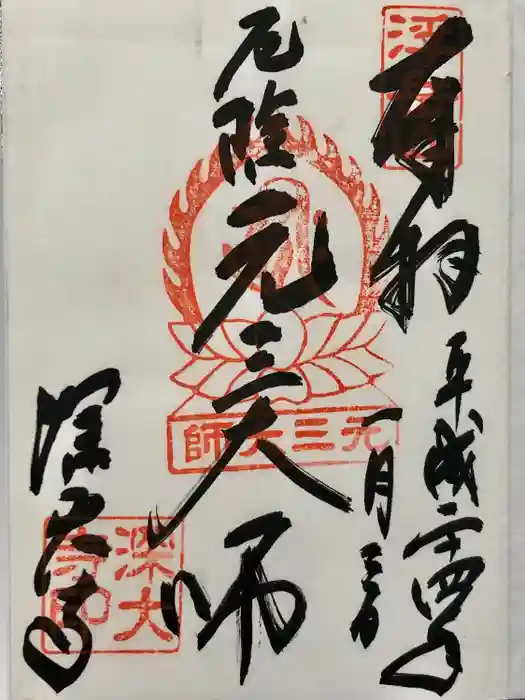 奉拝
平成二十四年
一月三日
厄除元三大師
元三大師
深大寺
深大寺印